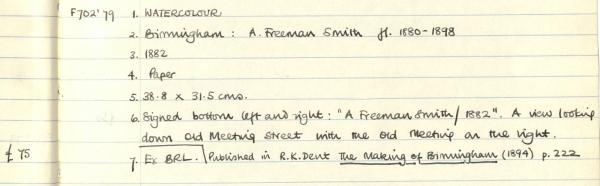 F702'79 1. WATERCOLOUR
2. Birmingham : A. Freeman Smith fl. 1880-1898
3. 1882
4. Paper
5. 38.8 x 31.5 cms.
6. Signed bottom left and right : "A Freeman Smith / 1882". A view looking
down Old Meeting Street with the Old Meeting on the right.
£75 7. Ex BRL. Published in R.K. Dent The Making of Birmingham (1894) p. 222